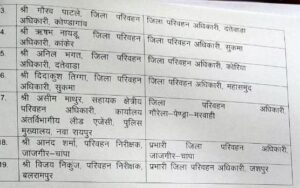 3 श्री गौरव पाटले, जिला परिवहन अधिकारी, कोण्डागांव
जिला परिवहन अधिकारी, दंतेवाड़ा
4 श्री ऋषभ नायडू, जिला परिवहन अधिकारी, कांकेर
जिला परिवहन अधिकारी, सुकमा
5. श्री अनिल भगत, जिला परिवहन अधिकारी, दंतेवाड़ा
जिला परिवहन अधिकारी, कोरिया
6. श्री दिवाकुश तिग्गा, जिला परिवहन अधिकारी, सुकमा
जिला परिवहन अधिकारी, महासमुंद
7. श्री असीम माथुर, सहायक क्षेत्रीय
परिवहन अधिकारी, कार्यालय
अंतर्विभागीय लीड एजेंसी, पुलिस
मुख्यालय, नवा रायपुर
जिला परिवहन अधिकारी,
गौरेला-पेण्ड्रा-मरवाही
18. श्री आनंद शर्मा, परिवहन निरीक्षक,
जाजगीर-चांपा
प्रभारी जिला परिवहन अधिकारी,
जाजगीर-चांपा
19. श्री विजय निकुंज, परिवहन निरीक्षक,
बलरामपुर
प्रभारी जिला परिवहन अधिकारी जशपुर